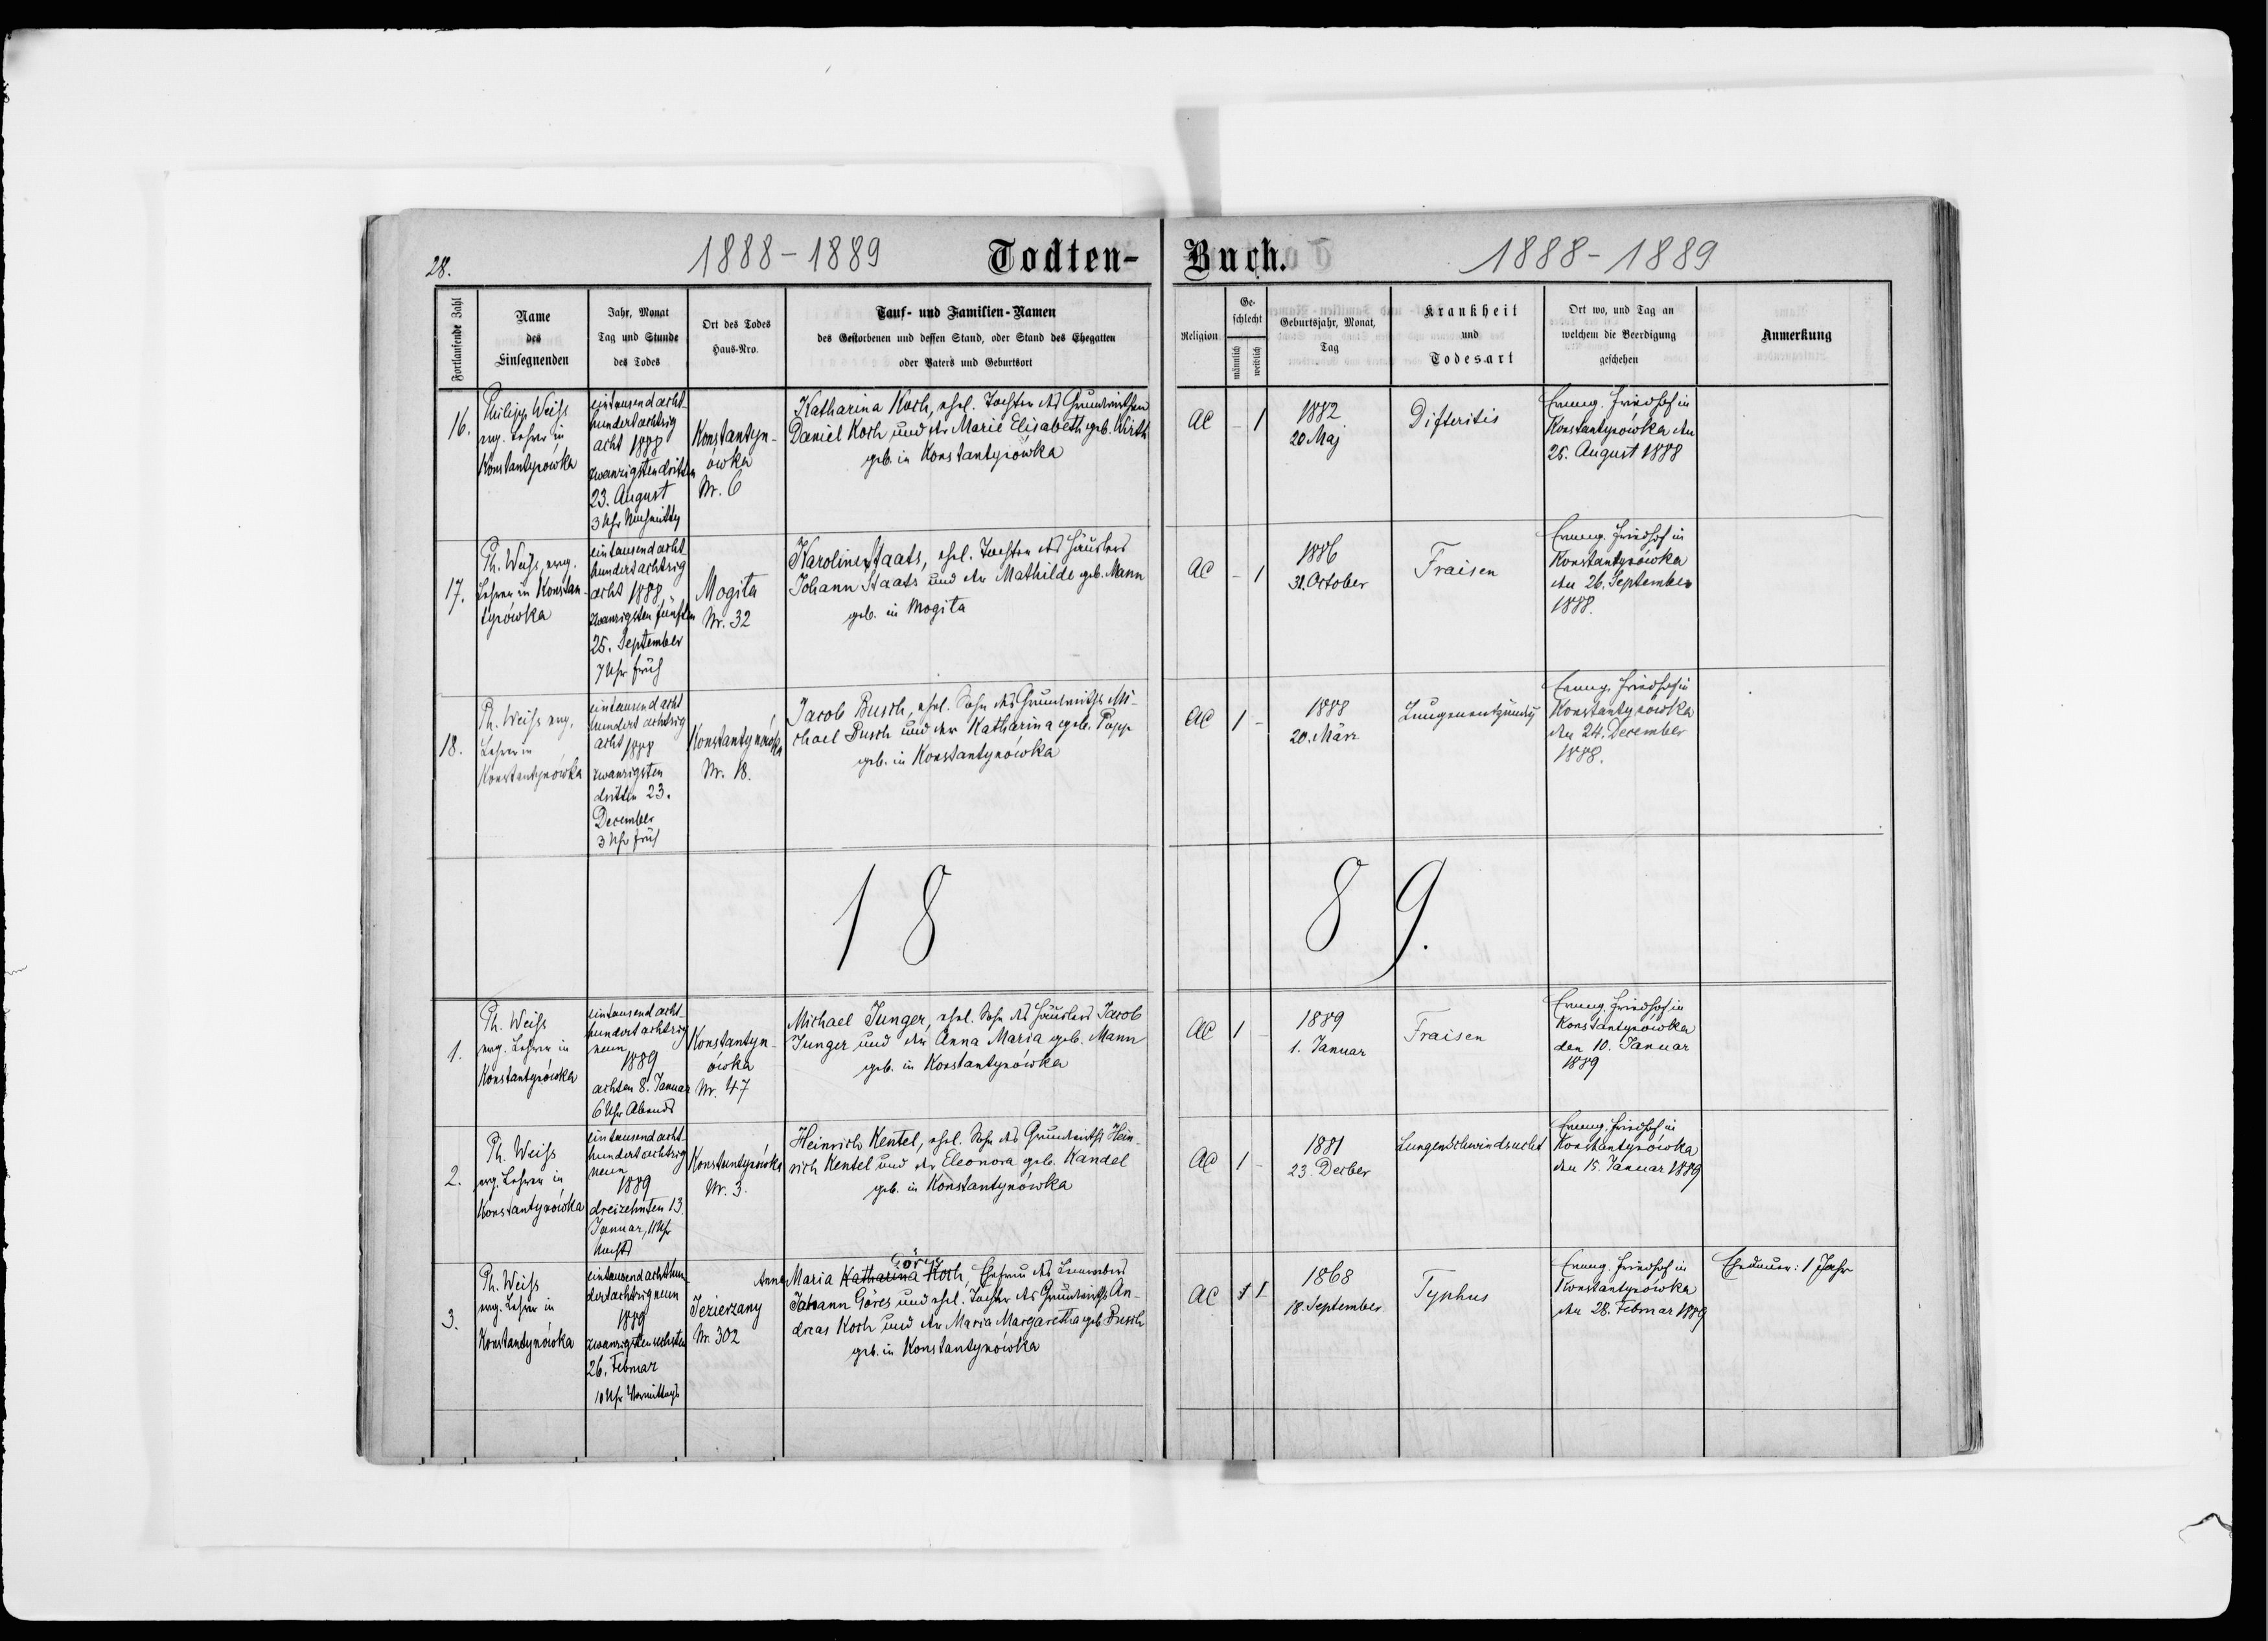 28.
1888-1889
Todten-
Buch.
1888-1889
Fortlaufende Zahl
Name
des
Einsegnenden
Jahr, Monat
Tag und Stunde
des Todes
Ort des Todes
Haus-Nro.
Tauf- und Familien-Namen
des Gestorbenen und dessen Stand, oder Stand des Ehegatten
oder Vaters und Geburtsort
Religion
Ge-
schlecht
männlich
weiblich
Geburtsjahr, Monat,
Tag
Krankheit
und
Todesart
Ort wo, und Tag an
welchem die Beerdigung
geschehen
Anmerkung
16.
Philipp Weiss
evg. Lehrer in
Konstantynówka
eintausend acht
hundert achtzig
acht 1888
zwanzigsten dritten
23. August
3 Uhr Nachmittg
Konstantyn-
ówka
Nr. 6
Katharina Koch, ehel. Tochter des Grundwirthen
Daniel Koch und der Marie Elisabeth geb. Wirth
geb. in Konstantynówka
AC
- 1
1882
20 Maj
Difteritis
Evang. Friedhof in
Konstantynówka den
25. August 1888
17.
Ph. Weiss, evg.
Lehrer in Konstan-
tynówka
eintausend acht
hundert achtzig
acht 1888
zwanzigsten fünften
25. September
7 Uhr früh
Mogita
Nr. 32
Karoline Staats, ehel. Tochter des Häuslers
Johann Staats und der Mathilde geb. Mann
geb. in Mogita
AC
- 1
1886
31. October
Fraisen
Evang. Friedhof in
Konstantynówka
den 26. September
1888.
18.
Ph. Weiss evg.
Lehrer in
Konstantynówka
eintausend acht
hundert achtzig
acht 1888
zwanzigsten
dritten 23.
December
3 Uhr früh
Konstantynówka
Nr. 18.
Jacob Busch, ehel. Sohn des Grundwirths Mi-
chael Busch und der Katharina geb. Popp
geb. in Konstantynówka
AC
1 -
1888
20. März
Lungenentzündg
Evang. Friedhof in
Konstantynówka
den 24. December
1888.
18
89.
1.
Ph. Weiss
evg. Lehrer in
Konstantynówka
eintausend acht
hundert achtzig
neun
1889
achten 8. Januar
6 Uhr Abends
Konstantyn-
ówka
Nr. 47
Michael Junger, ehel. Sohn des Häuslers Jacob
Junger und der Anna Maria geb. Mann
geb. in Konstantynówka
AC
1 -
1889
1. Januar
Fraisen
Evang. Friedhof in
Konstantynówka
den 10. Januar
1889
2.
Ph. Weiss
evg. Lehrer in
Konstantynówka
eintausend acht
hundert achtzig
neun
1889
dreizehnten 13.
Januar, 11 Uhr
Nachts
Konstantynówka
Nr. 3.
Heinrich Kentel, ehel. Sohn des Grundwirths Hein-
rich Kentel und der Eleonora geb. Kandel
geb. in Konstantynówka
AC
1 -
1881
23. Decber
Lungenschwindsucht
Evang. Friedhof in
Konstantynówka
den 15. Januar 1889
3.
Ph. Weiss
evg. Lehrer in
Konstantynówka
eintausend achthun-
dert achtzig neun
1889
zwanzigsten sechsten
26. Februar
10 Uhr Vormittags
Jezierzany
Nr. 302
Göres
Anna Maria Katharina Koch, Ehefrau des
Johann Göres und ehel. Tochter des Grundwirths An-
dreas Koch und der Maria Margaretha geb. Busch
geb. in Konstantynówka
AC
1 1
1868
18. September
Typhus
Evang. Friedhof in
Konstantynówka
den 28. Februar 1889
Ehedauer: 1 Jahr